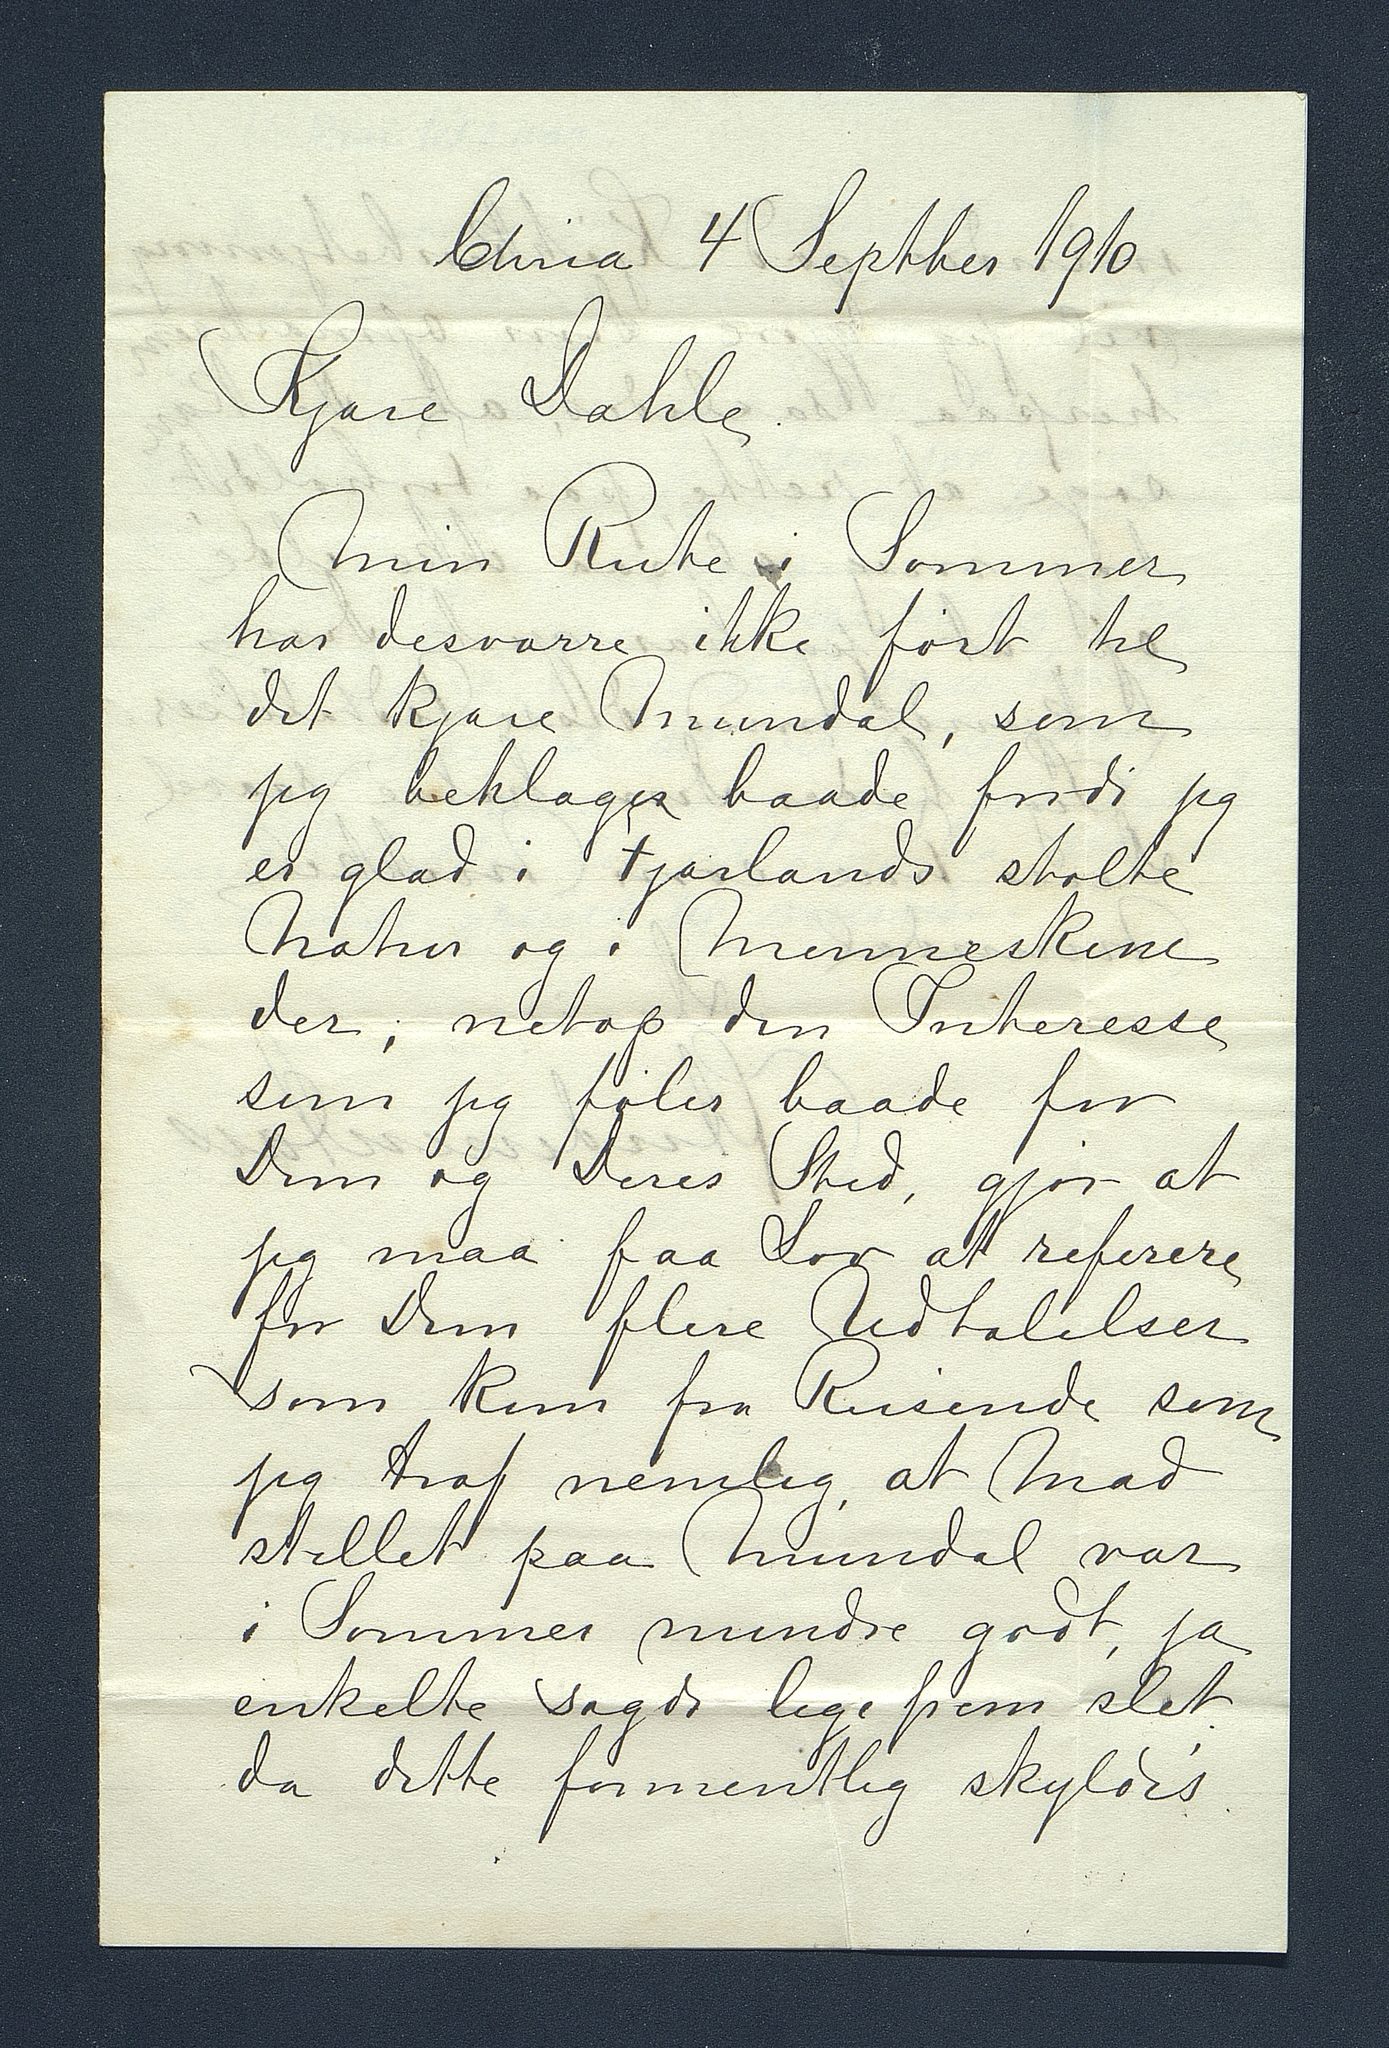 Chria 4 Septber 1910
Kjære Dahle.
Min Rute i Sommer
har desværre ikke ført til
det kjære Mundal, som
jeg beklager baade fordi jeg
er glad i Fjærlands stolte
Natur og i Menneskene
der; netop den Interesse
som jeg føler baade for
Dem og Deres Sted, gjør at
jeg maa faa Lov at referere
for Dem flere Udtalelser
som kom fra Reisende som
jeg traf nemlig, at Mad
stellet paa Mundal var
i Sommer mindre godt, ja
enkelte sagde lige frem slet.
da dette formentlig skyldes